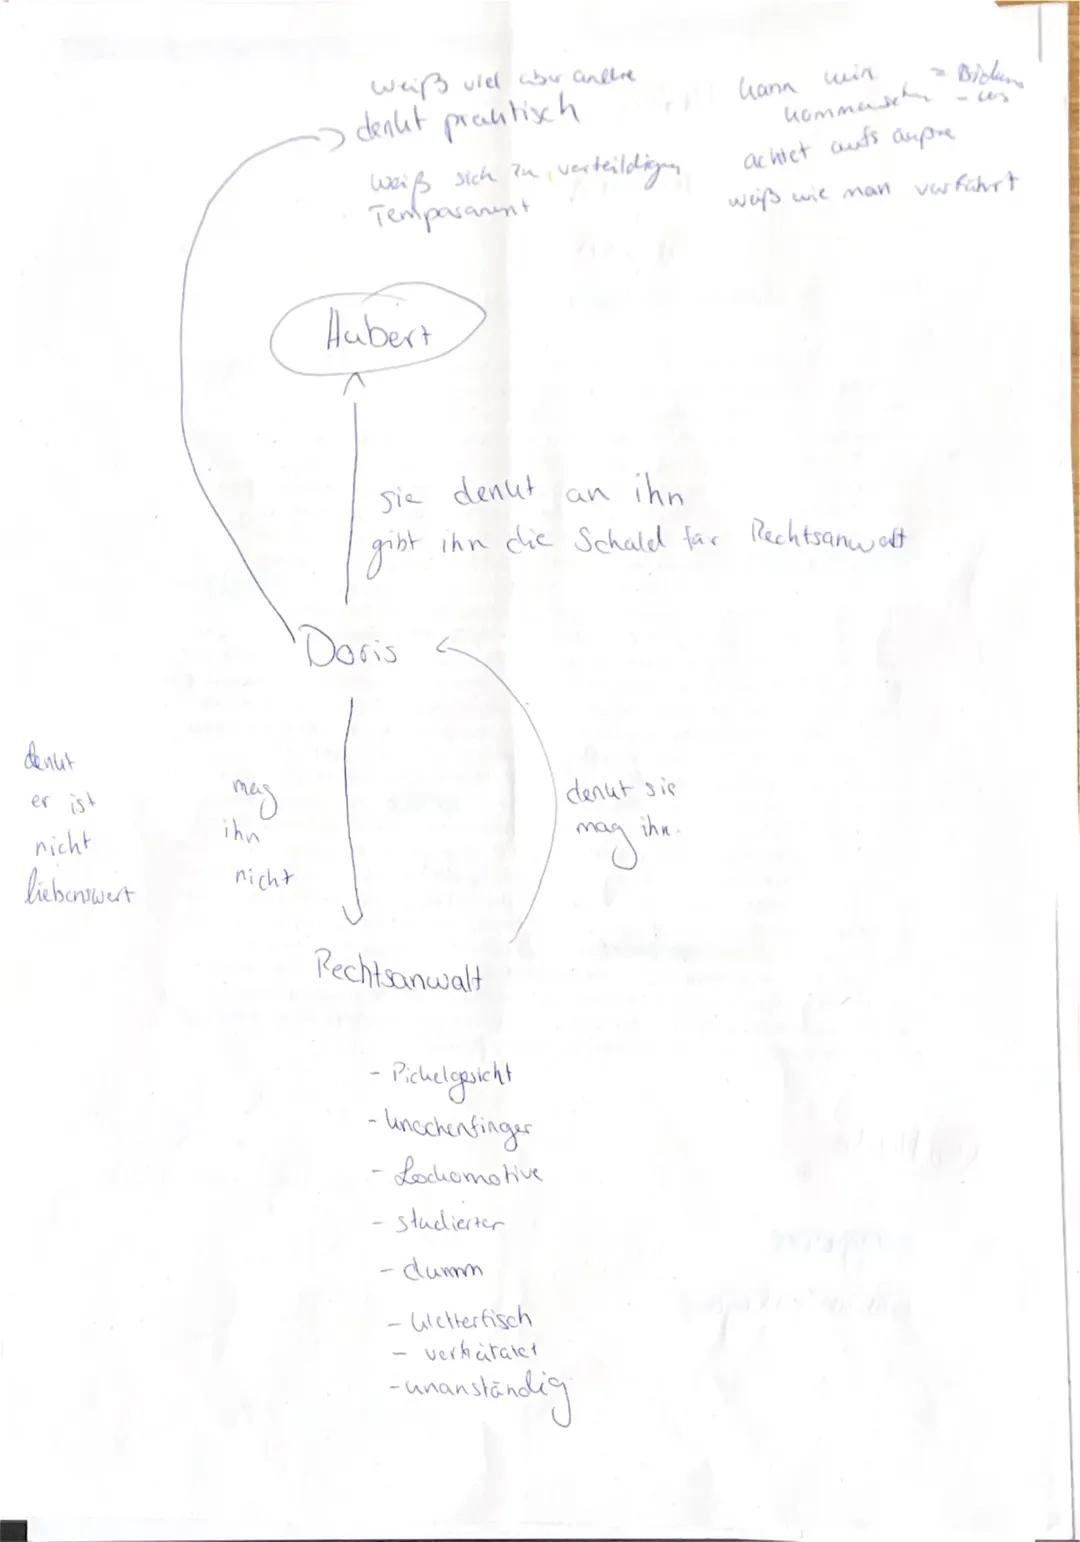 weiß viel über andere
denkt praktisch
weiß sich zu verteildigen
Temparament
kann kein
achtet aufs äußre
weiß wie man verführt
Hubert
sie denkt an ihn
gibt ihn die Schuld für Rechtsanwalt
Doris
denkt
er ist
nicht
liebenswert
mag
ihn
nicht
denkt sie
mag ihn.
Rechtsanwalt
- Pickelgesicht
- Knochenfinger
- Lockomotive
- studierter
- dumm
- verheiratet
- unanständig